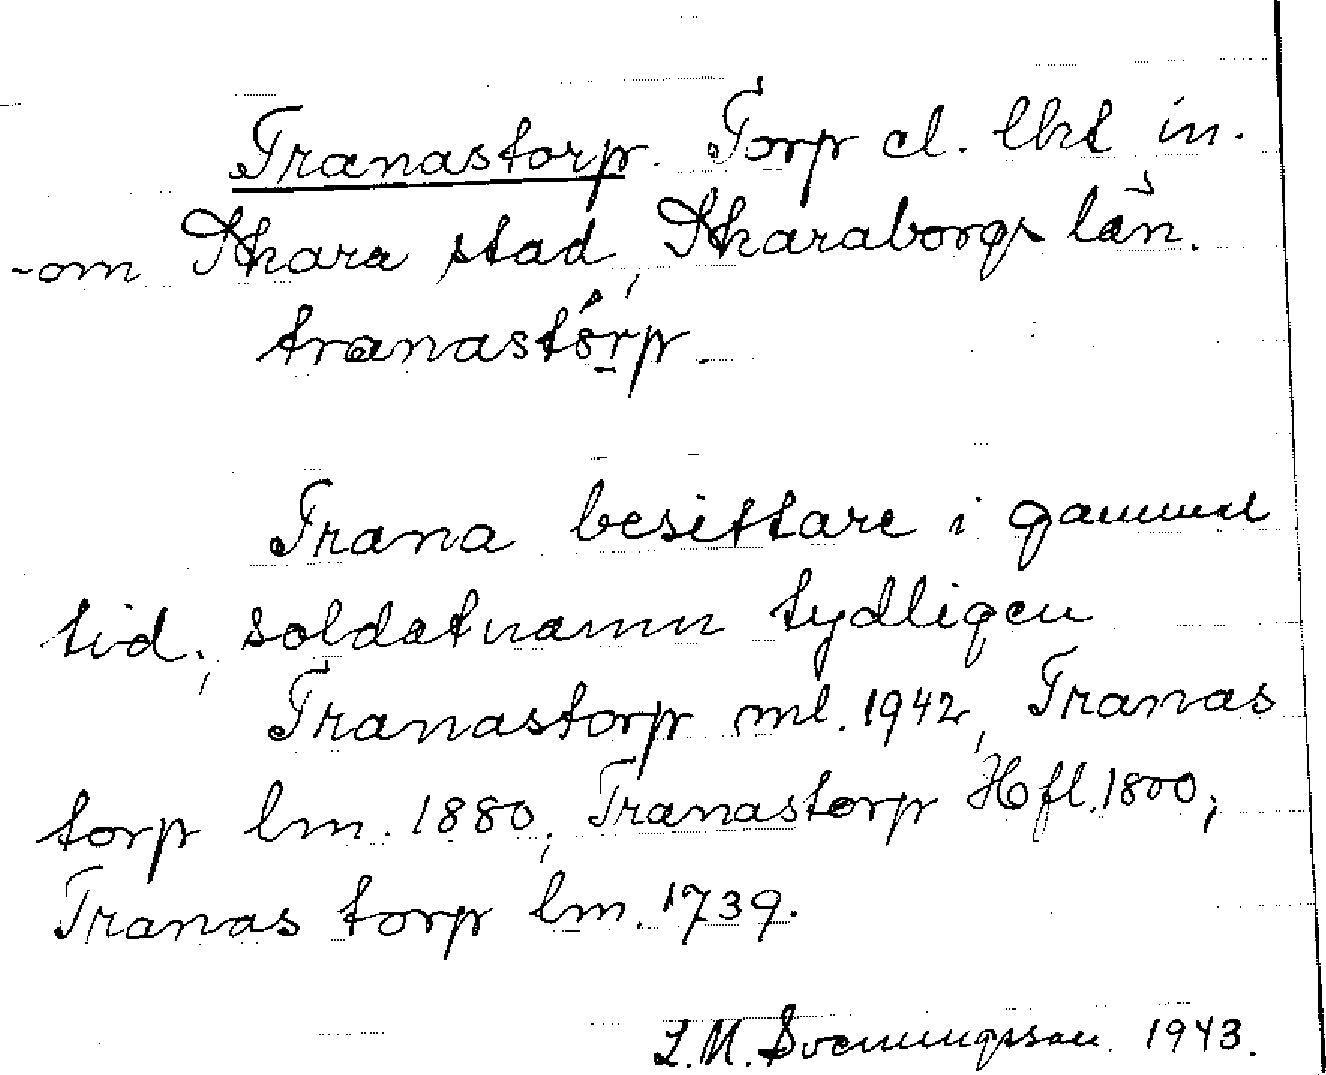 Tranastorp. Torp el. lht in-
-om Skara stad, Skaraborgs län.
tranastórp
Trana besittare i gammal
tid; soldatnamn tydligen
Tranastorp ml. 1942, Tranas
torp lm. 1880; Tranastorp Hfl. 1800;
Tranas torp lm. 1739.
L. M. Svenningsson. 1943.